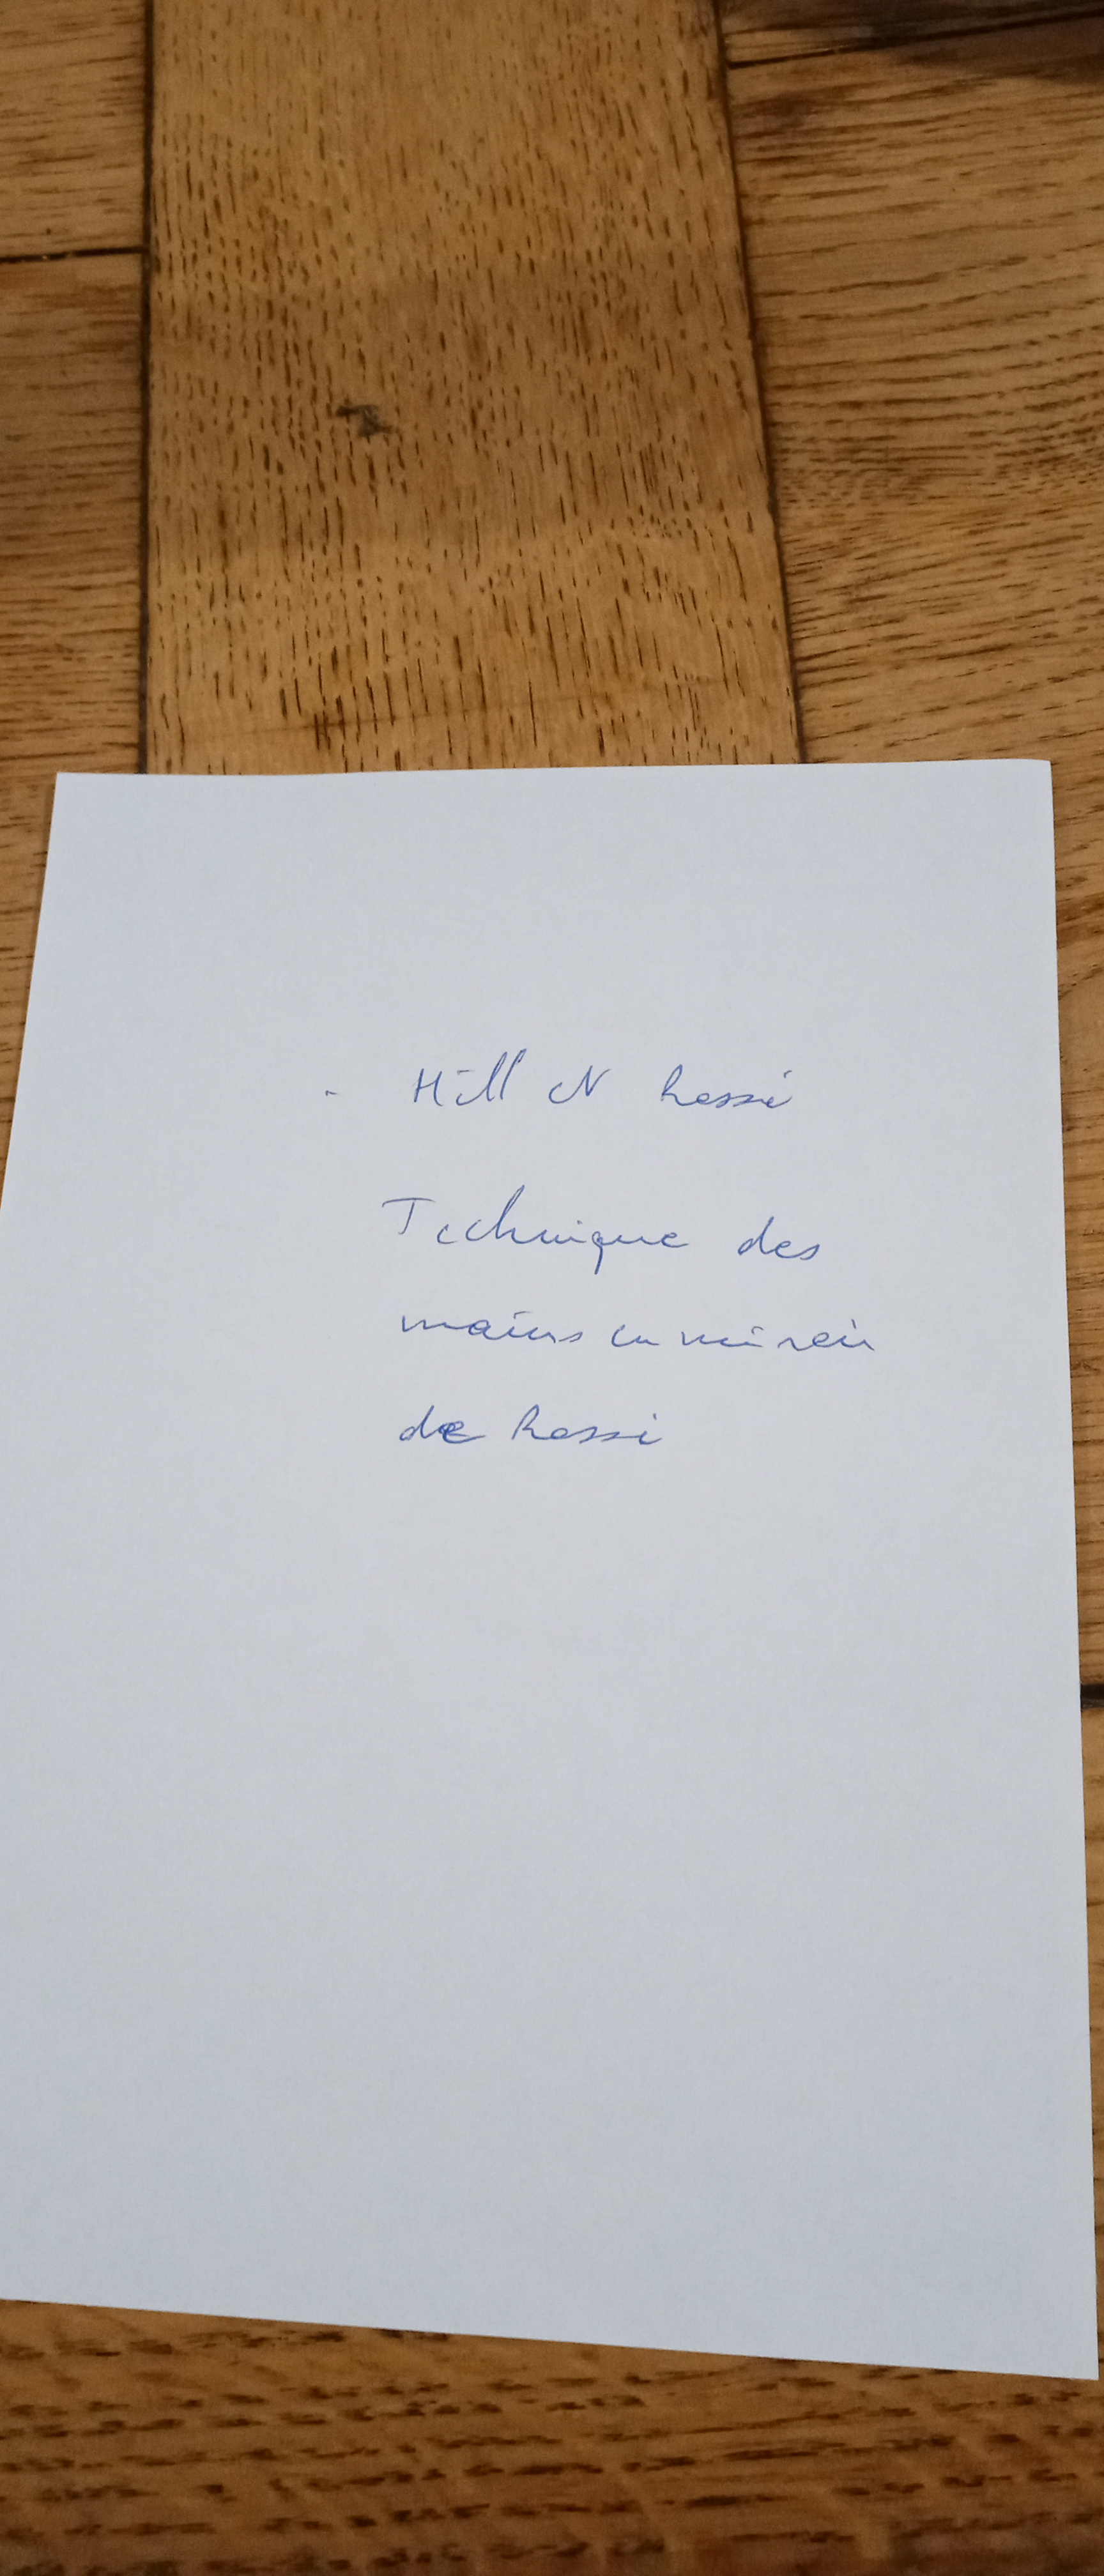 - Hill N Rossi
Technique des
mains en miroir
de Rossi